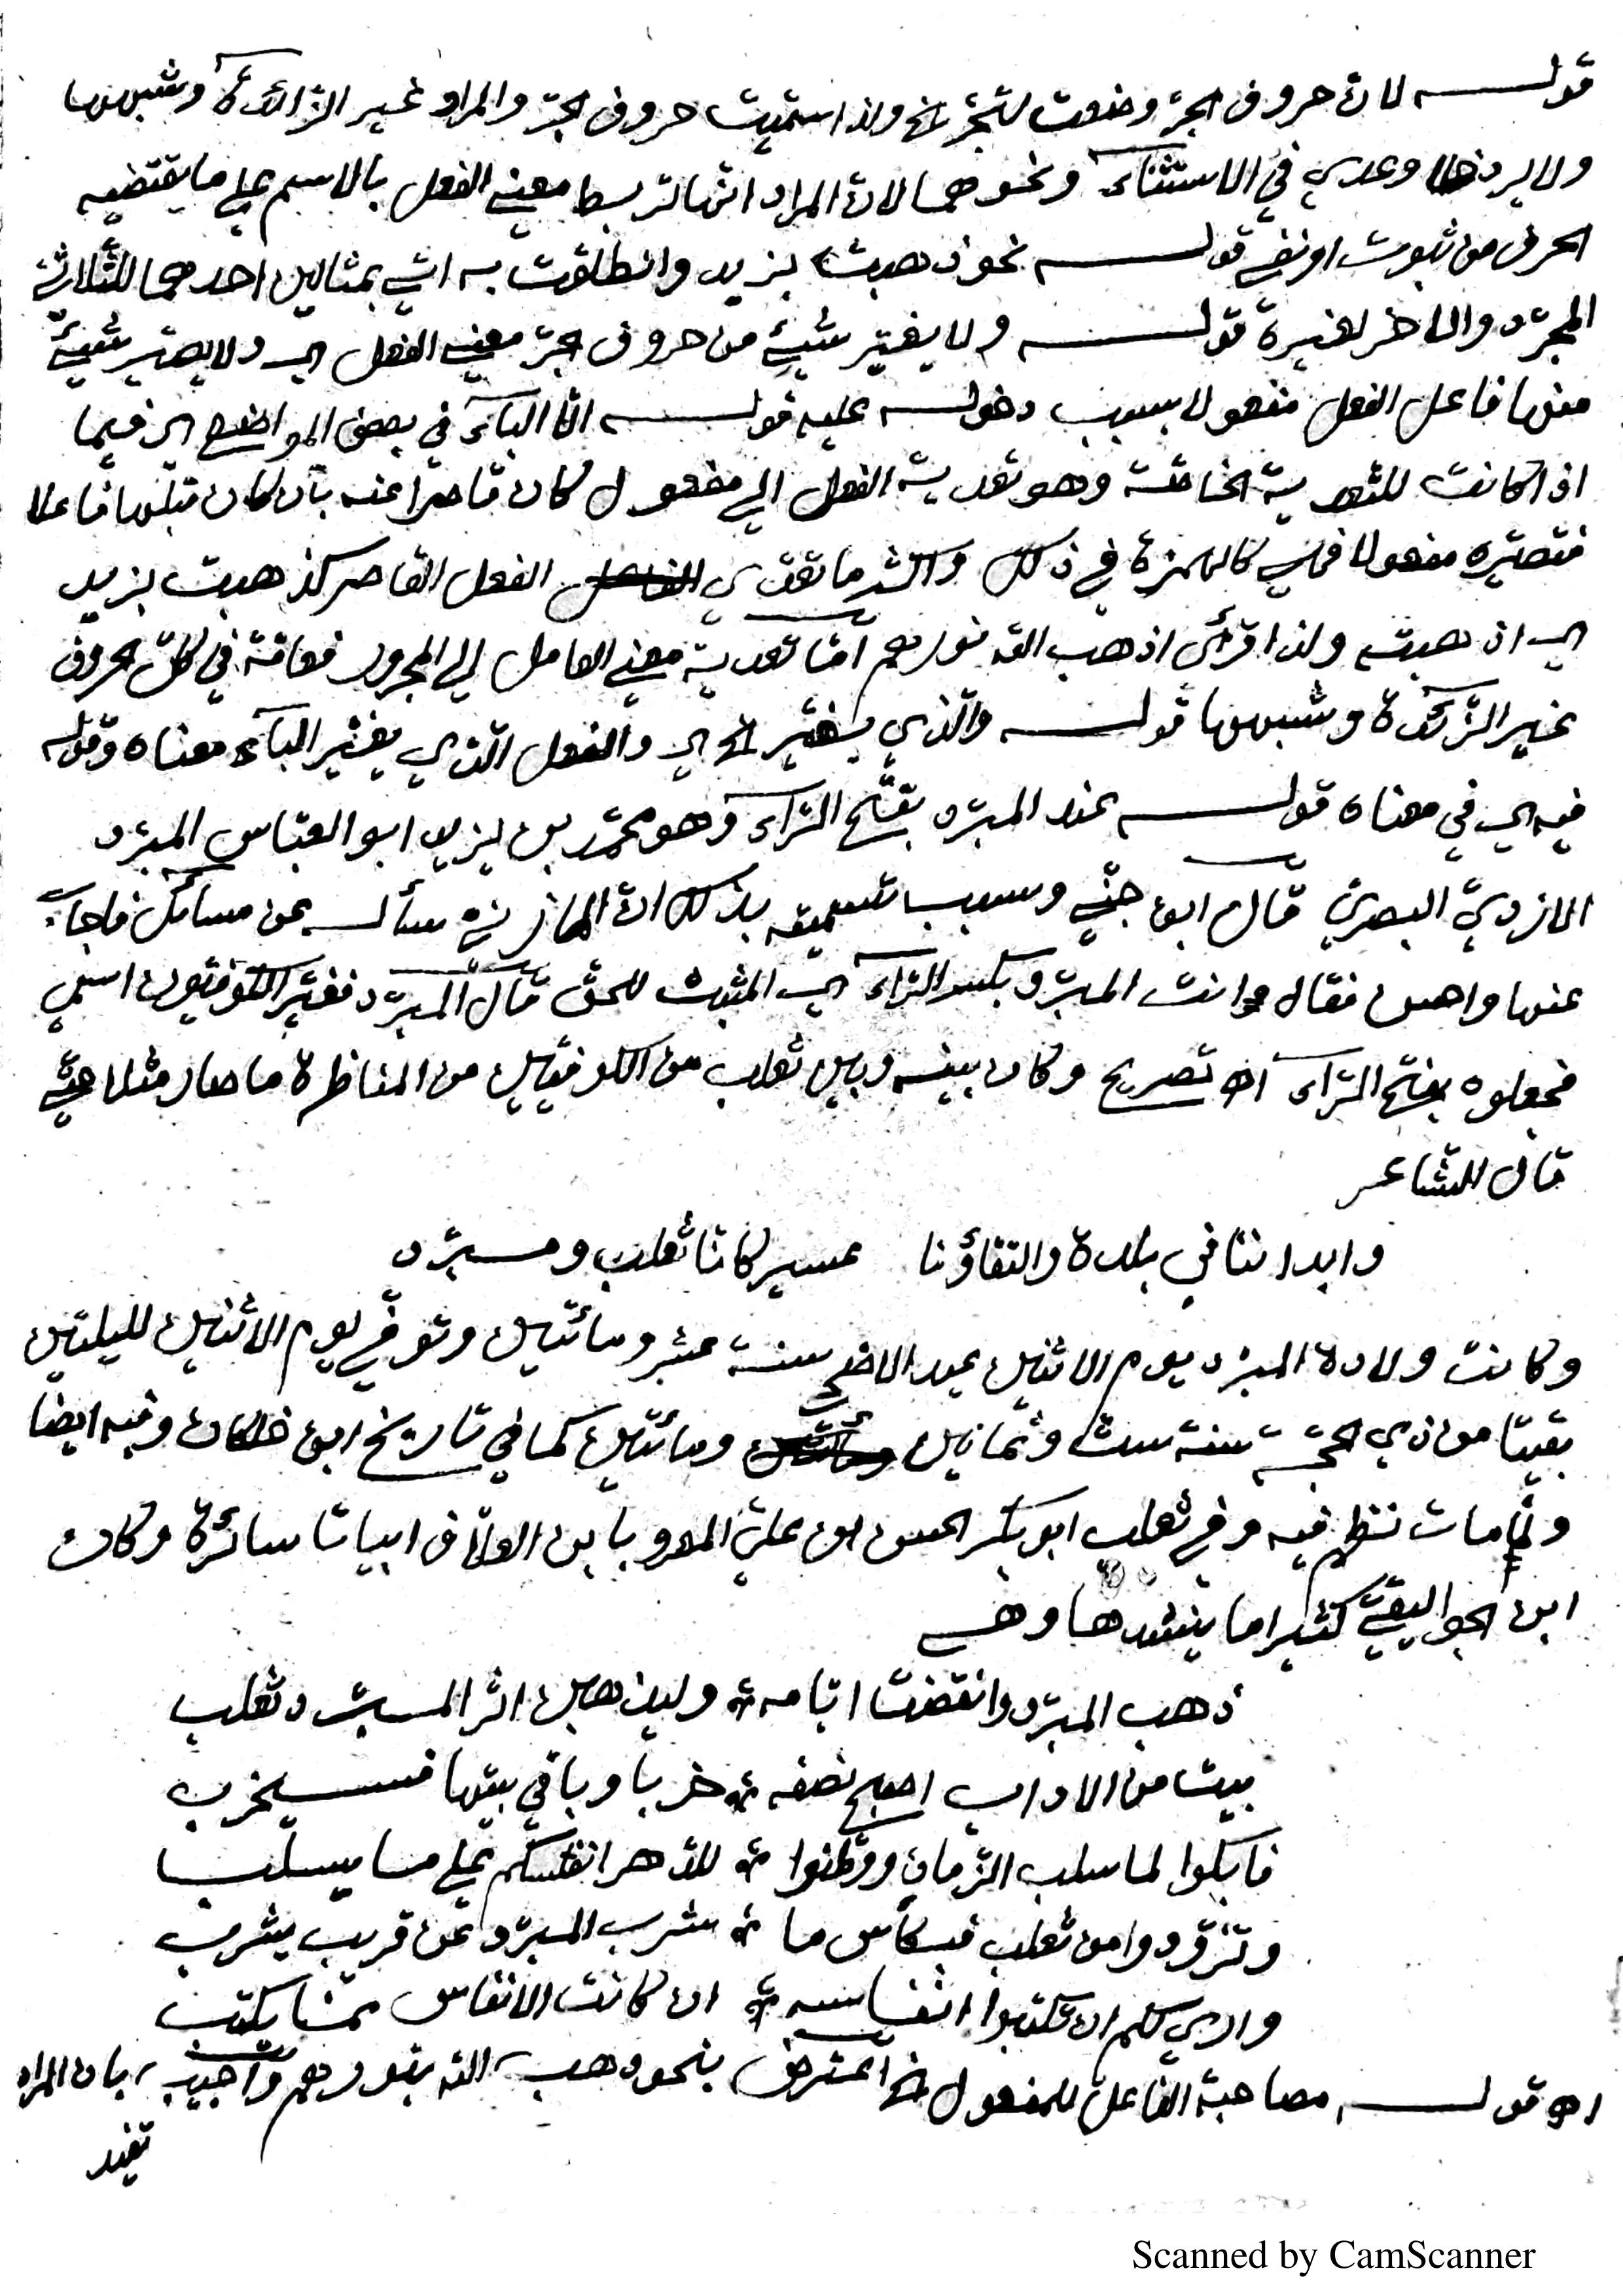 قولـه لان حروف الجرّ وضعت لتجرّ الخ ولذا سمّيت حروف الجرّ والمراد غير الزّائدة وشبهها
ولا يرد خلا وعدي في الاستثناء ونحوهما لانّ المراد انّها تربط معني الفعل بالاسم علي ما يقتضيه
الحرف من ثبوت او نفي قولـه نحو ذهبت بزيد وانطلقت به اتي بمثالين احدهما للثّلاثيّ
المجرّد والاخر لغيرة قولـه ولا يغيّر شيئ من حروف الجرّ معني الفعل اي ولا يصيّر شيئ
منها فاعل الفعل مفعولا بسبب دخولـه عليه قولـه الّا الباء في بعض المواضع اي فيما
اذا كانت للتّعدية الخاصّة وهو تعدية الفعل الي مفعول كان قاصرا عنه بان كان قبلها فاعلا
فتصيّره مفعولا فهي كالهمزة في ذلك واكثر ما تعدّي الفعل القاصر كذهبت بزيد
اي اذهبته ولذا قرأي اذهب الله نورهم امّا تعدية معني العامل الي المجرور فعامّة في كلّ الحروف
غير الزّائدة وشبهها قولـه والّذي يغيّر الخ اي والفعل الّذي يغيّر الباء معناه وقوله
فيه اي في معناه قولـه عند المبرّد بفتح الرّاء وهو محمّد بن يزيد ابو العبّاس المبرّد
الازديّ البصريّ قال ابن جنّي وسبب تسميته بذلك انّ المازنيّ سألـه عن مسائل فاجاب
عنها واحسن فقال انت المبرّد بكسر الرّاء اي المثبت للحق قال المبرّد فغيّر الكوفيّون اسمي
فجعلوه بفتح الرّاء اه تصريح وكان بينه وبين ثعلب من الكوفيّين من المناظرة ما صار مثلا حتّي
قال الشّاعر
وابداننا في بلدة والتقاؤنا عسير كانّا ثعلب ومبرّد
وكانت ولادة المبرّد يوم الاثنين عيد الاضحي سنة عشر ومائتين وتوفّي يوم الاثنين لليلتين
بقيتا من ذي الحجّة سنة ستّ وثمانين ومائتين كما في تاريخ ابن خلكان وفيه ايضا
ولمّا مات نظم فيه وفي ثعلب ابو بكر الحسن ابن عليّ المعروف بابن العلّاف ابياتا سائرة وكان
ابن الجواليقيّ كثيرا ما ينشدها وهي
ذهب المبرّد وانقضت ايّامه وليذهبن اثر المبرّد ثعلب
بيت من الاداب اصبح نصفه خربا وباقي بيتها فسيخرب
فابكوا لما سلب الزّمان ووطّنوا للدّهر انفسكم علي ما يسلب
وتزوّدوا من ثعلب فبكأس ما شرب المبرّد عن قريب يشرب
واري لكم ان تكتبوا انفاسه ان كانت الانفاس ممّا يكتب
اه قولـه مصاحبة الفاعل للمفعول الخ اعترض بنحو ذهب الله بنورهم واجيب بان المراد
تفيد
Scanned by CamScanner